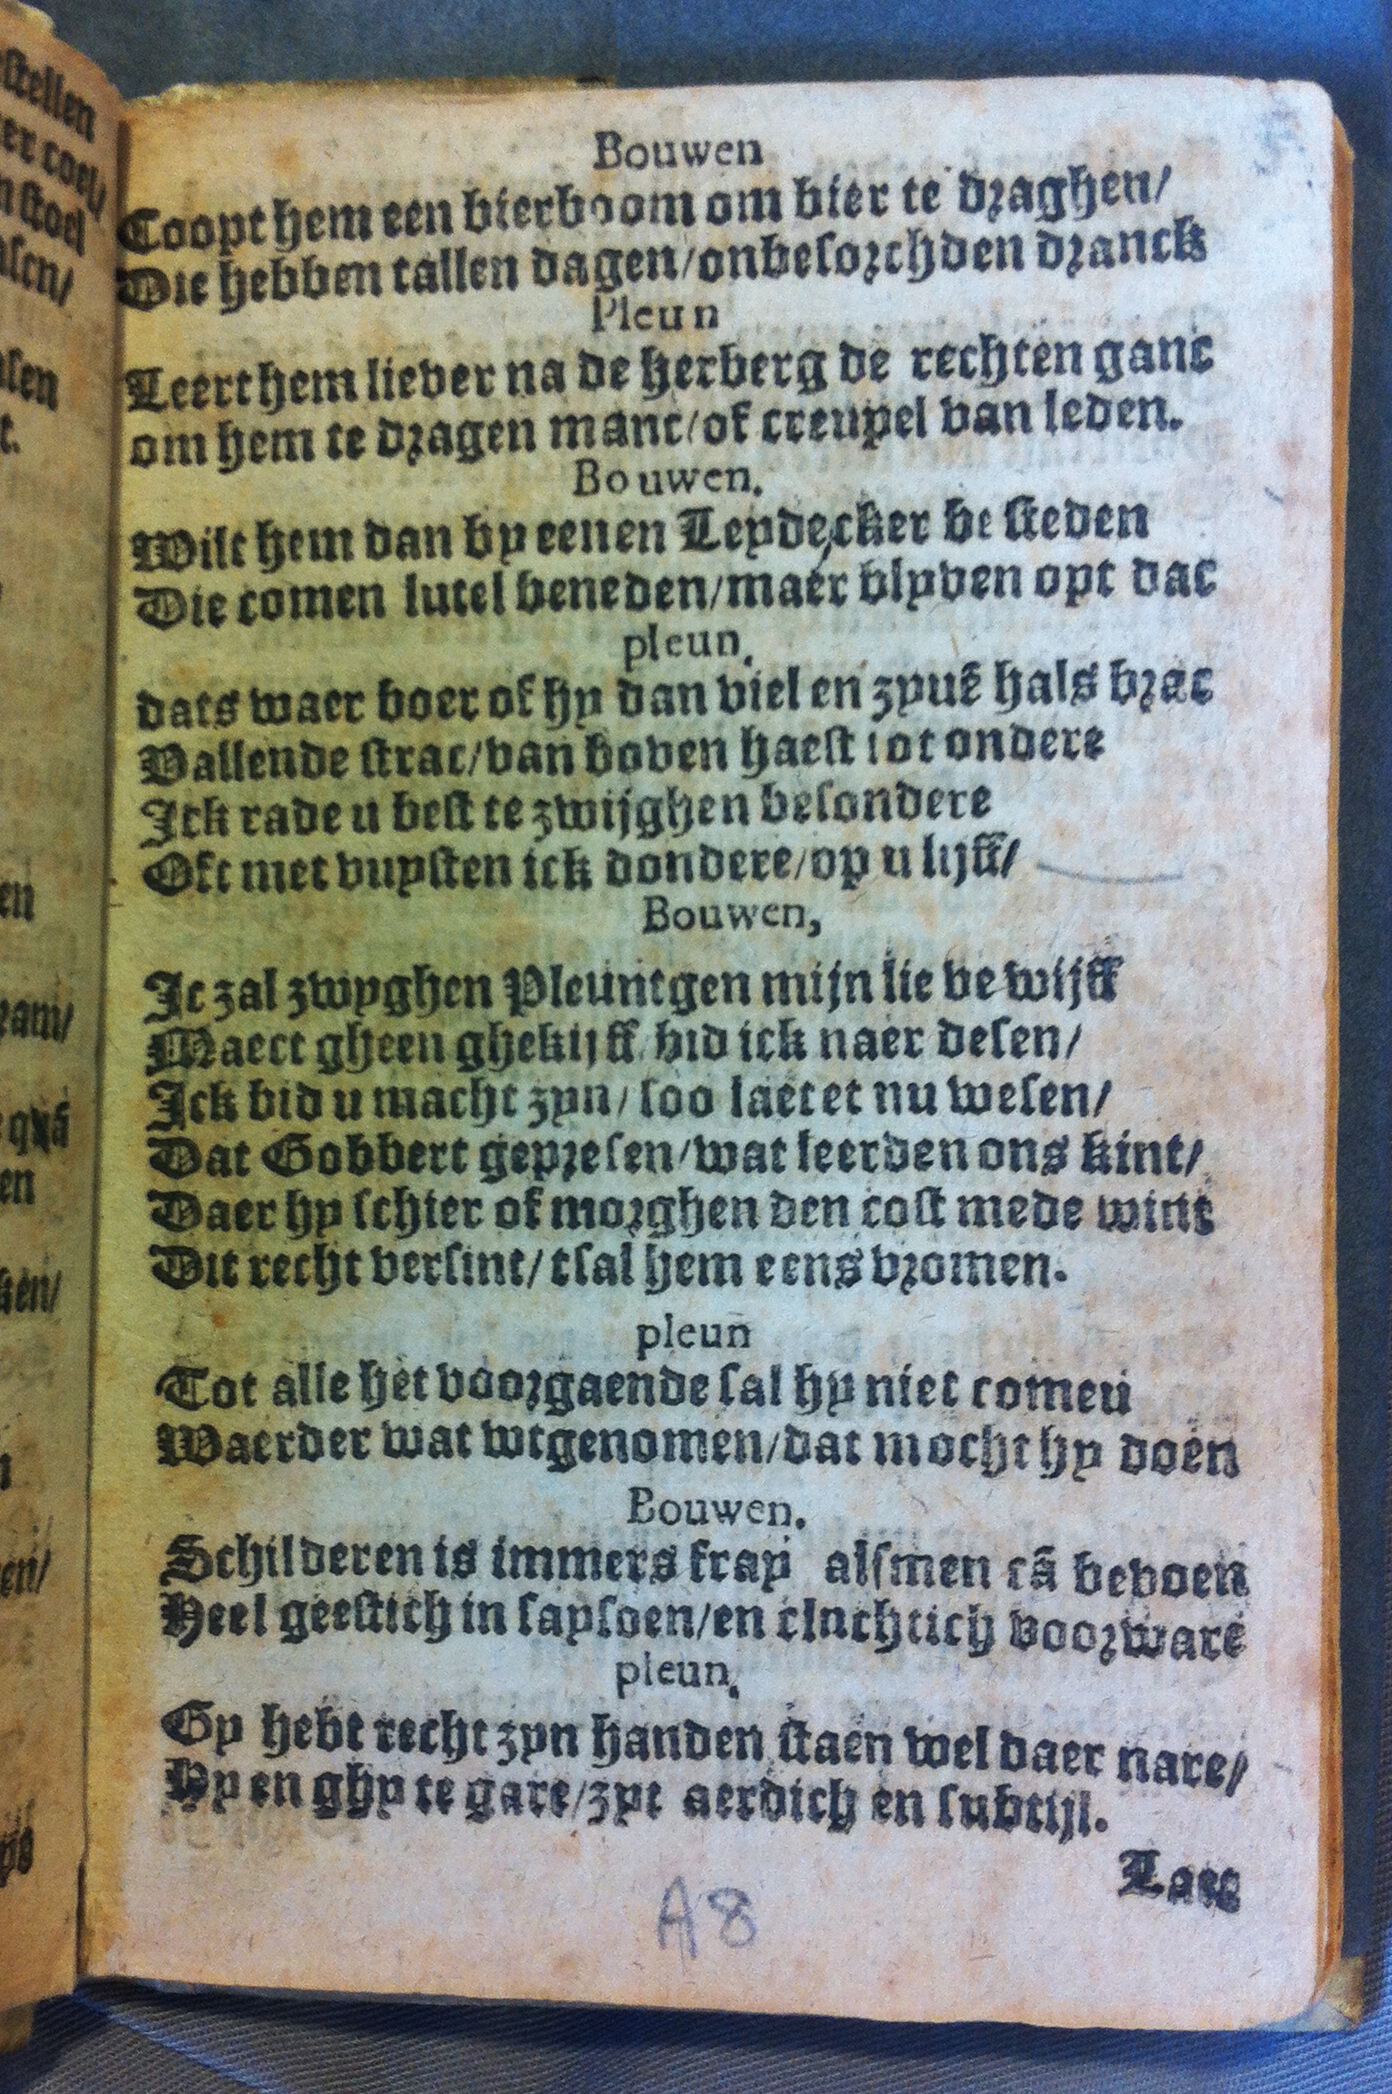 Bouwen
Coopt hem een bierboom om bier te draghen/
Die hebben tallen dagen/onbesorchden dranck
Pleun
Leert hem liever na de herberg de rechten ganc
om hem te dragen manc/of creupel van leden.
Bouwen.
Wilt hem dan by eenen Leydecker besteden
Die comen lutel beneden/maer blyven opt dac
pleun.
dats waer boer of hy dan viel en zynẽ hals brac
Vallende strac/van boven haest tot ondere
Ick rade u best te zwijghen besondere
Oft met vuysten ick dondere/op u lijff/
Bouwen,
Ic zal zwyghen Pleuntgen mijn lieve wijff
Maect gheen ghekijff/bid ick naer desen/
Ick bid u macht zyn/soo laetet nu wesen/
Dat Gobbert gepresen/wat leerden ons kint/
Daer hy schier of morghen den cost mede wint
Dit recht versint/tsal hem eens vromen.
pleun
Tot alle het voorgaende sal hy niet comen
Waerder wat wtgenomen/dat mocht hy doen
Bouwen.
Schilderen is immers fray alsmen cã bevoen
Heel geestich in saysoen/en cluchtich voorware
pleun.
Gy hebt recht zyn handen staen wel daer nare/
Hy en ghy te gare/zyt aerdich en subtijl.
Laet
A8
stellen
er coel/
stoel
sen/
sen
t.
en
ram/
quã
en
ken/
en/